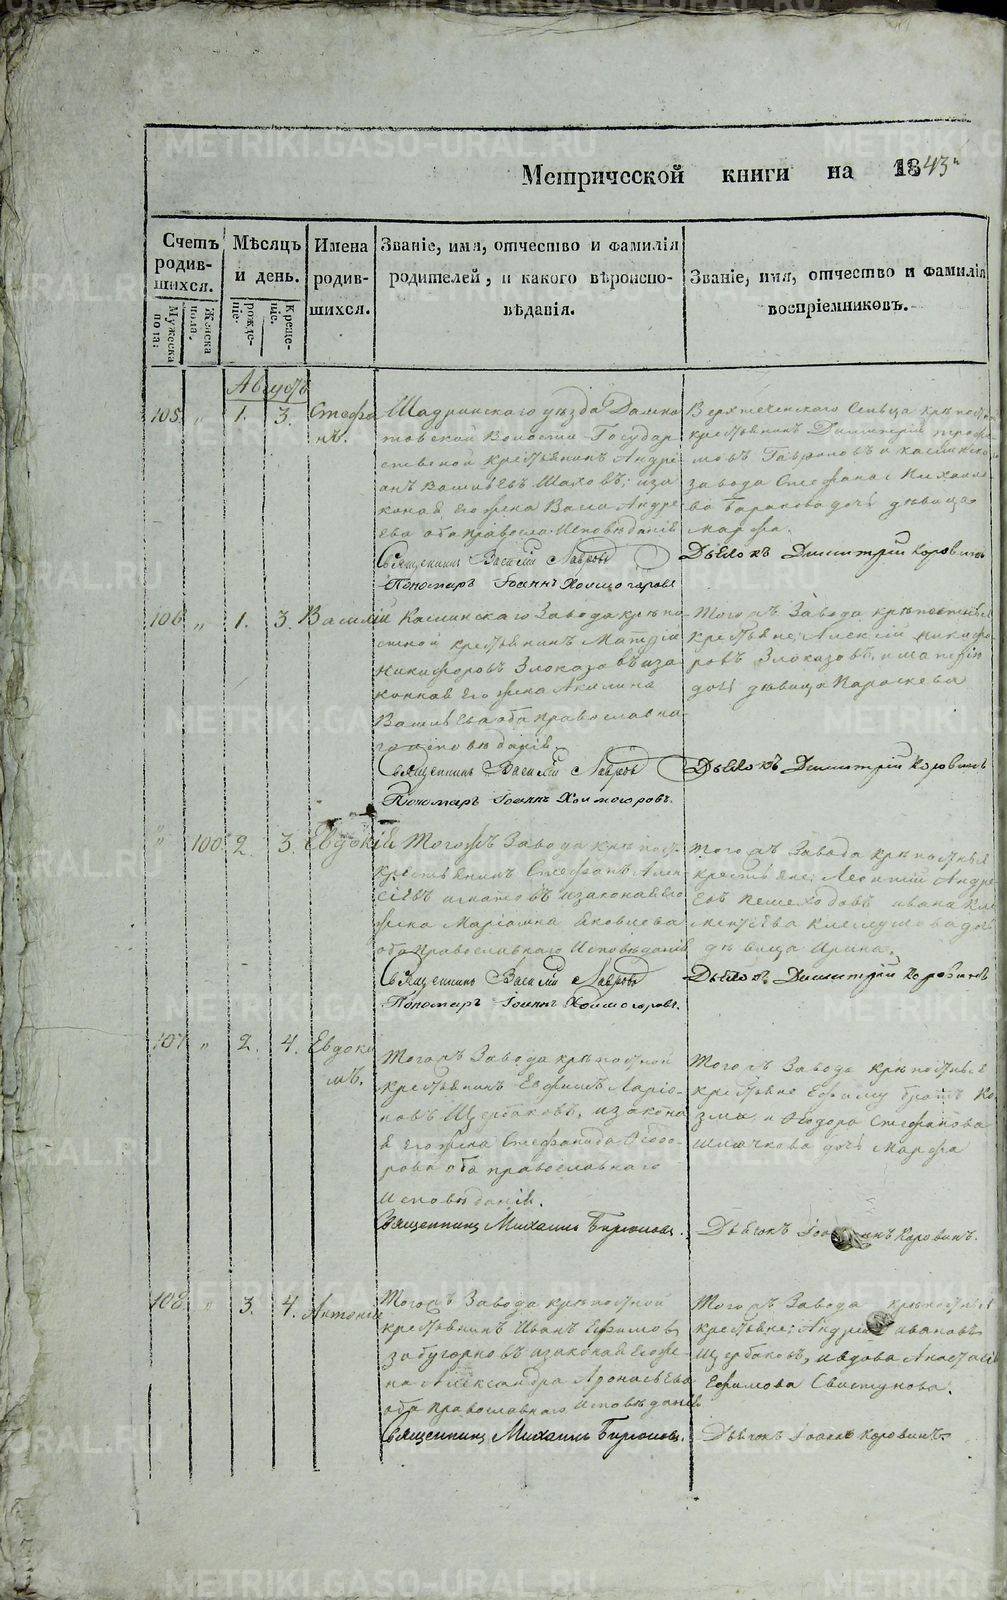 METRIKI.GASO-URAL.RU
Метрической книги на 1843й
Счетъ родив-шихся.
Мужеска пола:
Женска пола.
Мѣсяцъ и день.
рожде-ніе.
Креще-ніе.
Имена родив-шихся.
Званіе, имя, отчество и фамилія
родителей, и какого вѣроиспо-
вѣданія.
Званіе, имя, отчество и фамилія
воспріемниковъ.
Августъ
105 „ 1. 3. Стефа
нъ.
Шадринскаго уѣзда Далма
товской Волости Государ
ственной крестьянинъ Андре
анъ Васильевъ и за
конная его жена Васса Андре
ева оба правосла. Исповѣданія
Священникъ Василій Лавровъ
Пономарь Іоаннъ Холмогоровъ
Верхтеченскаго Сельца крѣпостн
крестьянинъ Димитрій Трофи
мовъ Гавриловъ и каслинско
завода Стефана Михайло
ва дочь дѣвица
Марфа.
Дьячокъ Димитрій Коровинъ
106 „ 1. 3. Василій
Каслинскаго Завода крѣпо
стной крестьянинъ Матвѣй
Никифоровъ Злоказовъ и за
конная его жена Акилина
Васильева оба православна
го исповѣданія.
Священникъ Василій Лавровъ
Пономарь Іоаннъ Холмогоровъ.
Того жъ Завода крѣпостныя
крестьяне, Алексѣй Никифо
ровъ Злоказовъ, и Матвѣя
дочь дѣвица Параскева
Дьячокъ Димитрій Коровинъ
„ 100. 2. 3. Евдокія
Того жъ Завода крѣпост.
крестьянинъ Стефанъ Алек
сѣевъ Игнатовъ и законная его
жена Маріамна Яковлева
оба Православнаго Исповѣданія
Священникъ Василій Лавровъ
Пономарь Іоаннъ Холмогоровъ.
Того жъ Завода крѣпостныя
крестьяне; Леонтій Андре
евъ Пешеходовъ Ивана Кли
ментьева дочь
дѣвица Ирина.
Дьячокъ Димитрій Коровинъ
107 „ 2. 4. Евдоки
мъ.
Того жъ Завода крѣпостной
крестьянинъ Евфимъ Ларіо-
новъ Щербаковъ, и законна
я его жена Стефанида Ѳеодо-
рова оба православнаго
Исповѣданія.
Священникъ Михаилъ Бирюковъ.
Того жъ Завода крѣпостныя
крестьяне Ефиму братъ Ко
зма и Ѳеодора Стефанова
дочь Марфа
Дьячокъ Іоаннъ Коровинъ.
108 „ 3. 4. Антоній
Того жъ Завода крѣпостной
крестьянинъ Иванъ Ефимовъ
Забугорновъ и законная его же
на Александра Аѳонасьева
оба Православнаго Исповѣданія
Священникъ Михаилъ Бирюковъ.
Того жъ Завода крѣпостныя
крестьяне; Андрей Ивановъ
Щербаковъ, и вдова Анастасія
Ефимова Свистунова.
Дьячокъ Іоаннъ Коровинъ.